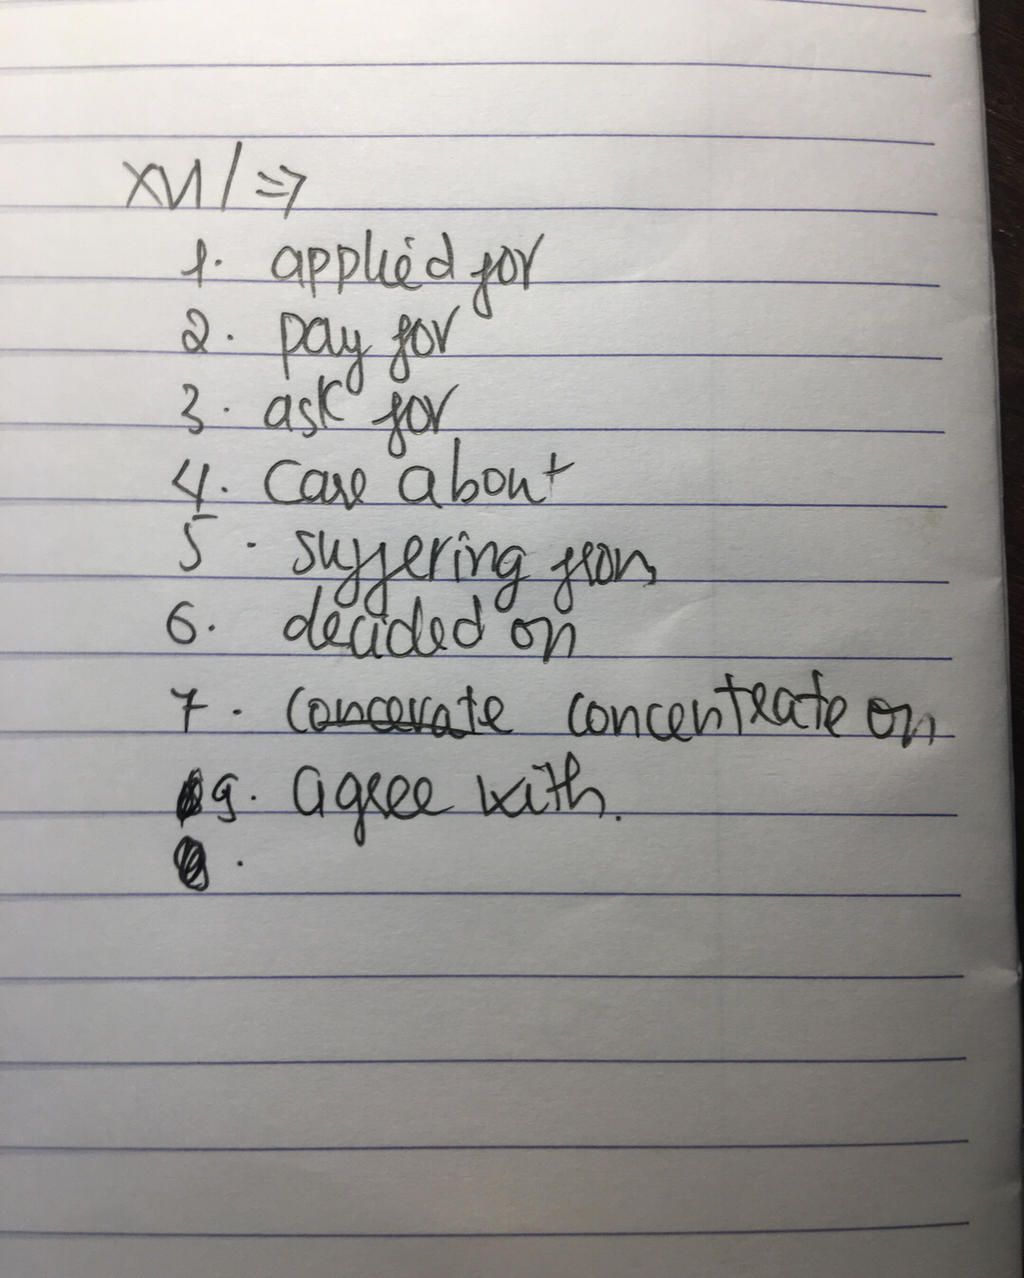 XVI / =>
1. applied for
2. pay for
3. ask for
4. Care about
5. suffering from
6. decided on
7. concentrate on
9. agree with.